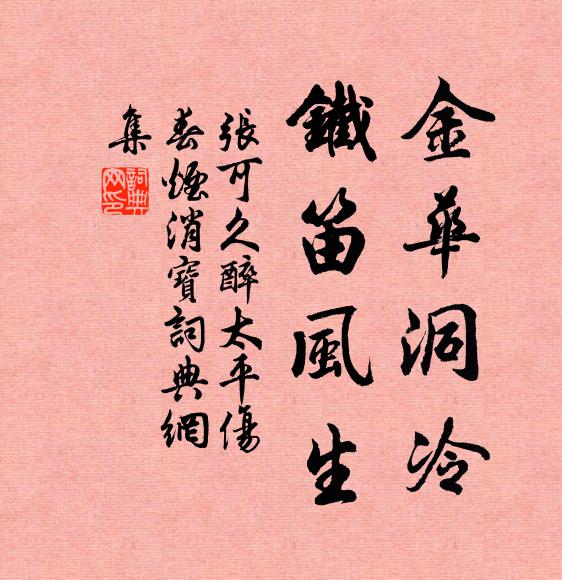 金華洞冷
鐵笛風生
張可久醉太平傷
春煙消寶詞典網
集
詞典
网印